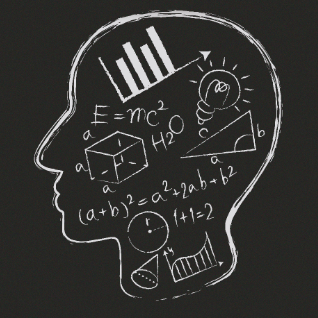 E=mc²
H2O
a
a
a
c
b
a
(a+b)²=a²+2ab+b²
1+1=2
r
y